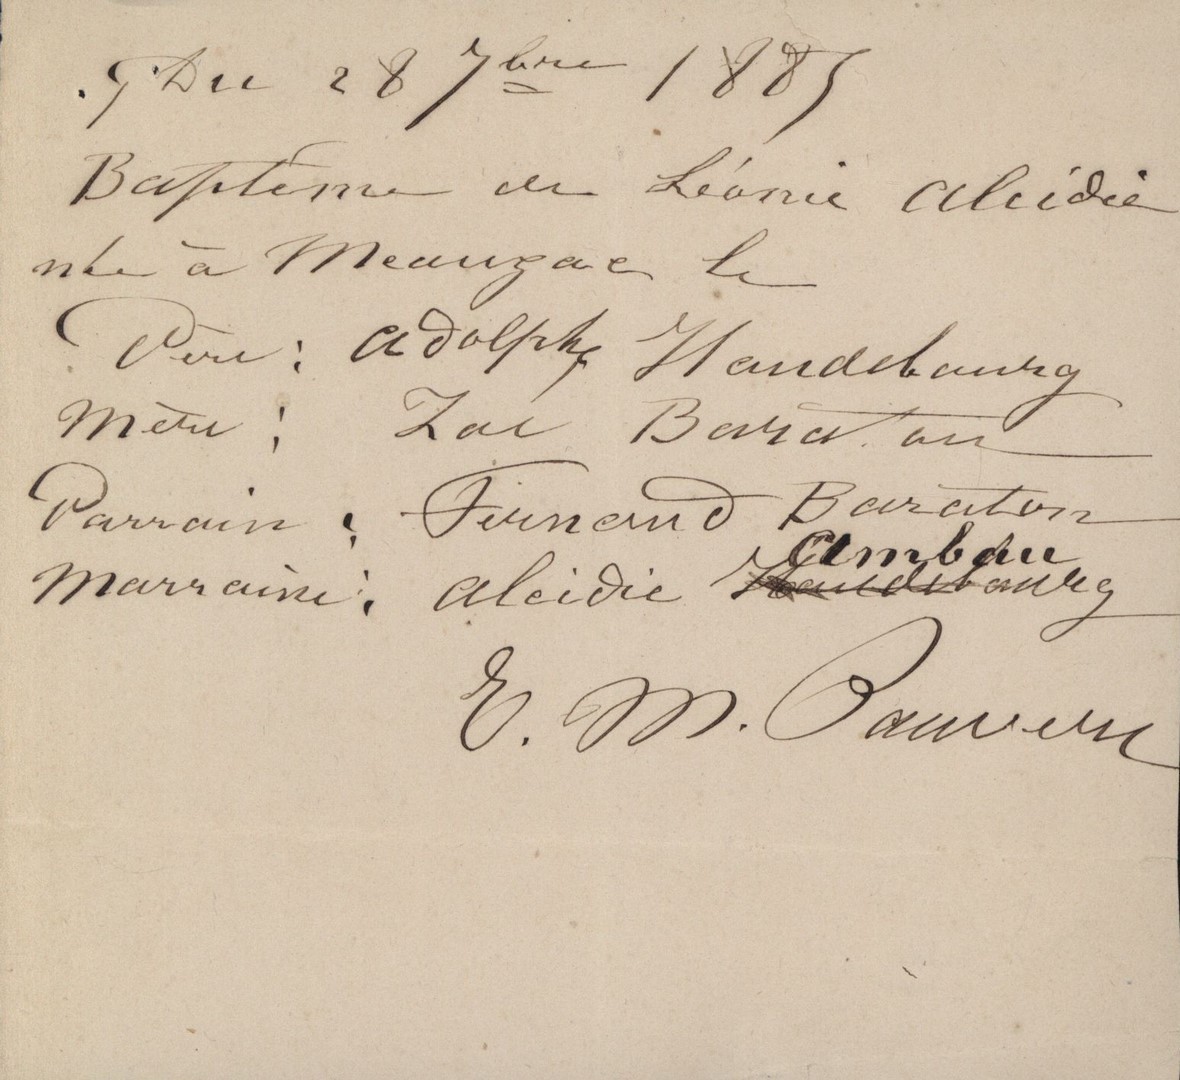 Du 28 7bre 1885
Baptême de Léonie Alcidie
née à Meauzac le
Père : Adolphe Haudebourg
Mère : Zoé Baraton
Parrain : Fernand Baraton
Ambau
Marraine : Alcidie Haudebourg
E. M. Pauvern